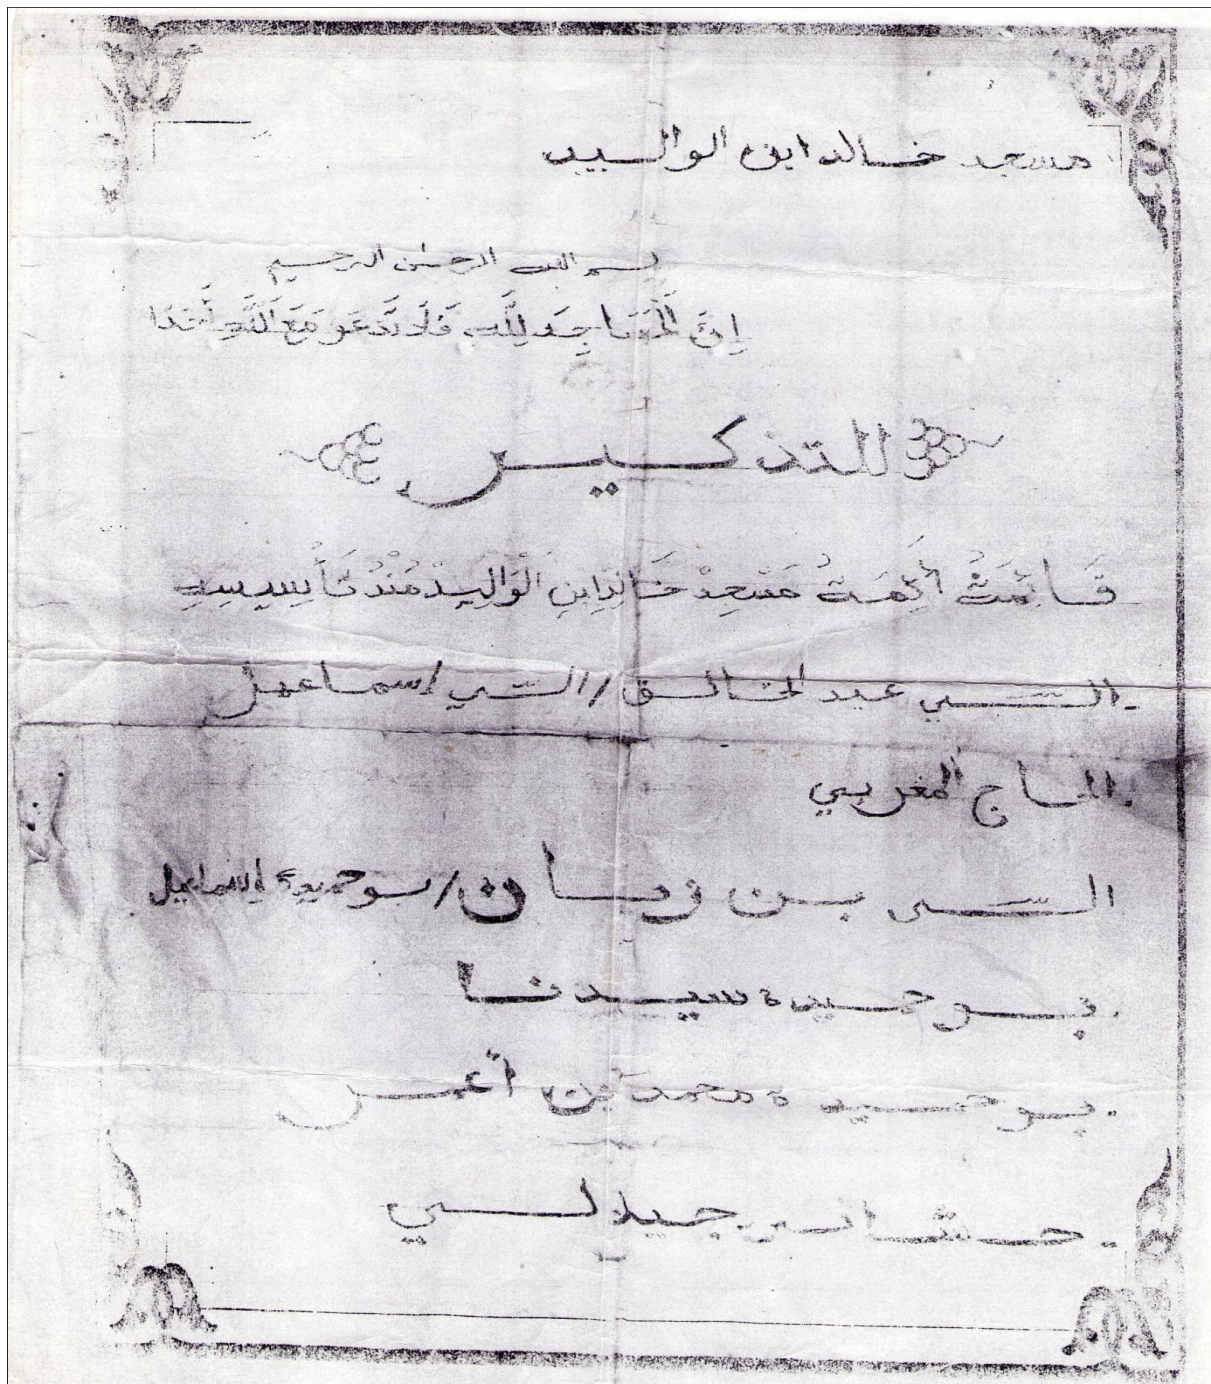 مسجد خالد ابن الواليد
بسم الله الرحمن الرحيم
إِنَّ الْمَسَاجِدَ لِلَّهِ فَلَا تَدْعَو مَعَ اللَّهِ أَحَدَا
للتذكير
قَائِمَةُ أَئِمَةُ مَسْجِدْ خَالِدِ ابْنِ الْوَالِيدْ مُنْدُ تَأْسِيسِهِ
- الشي عبد الخالق / الشي إسماعيل
. الحاج المغربي
الشي بن زيان / بوحميدة إسماعيل
. بوحميدة سيدنا
. بوحميدة محمد بن أعمر
- جيلالي